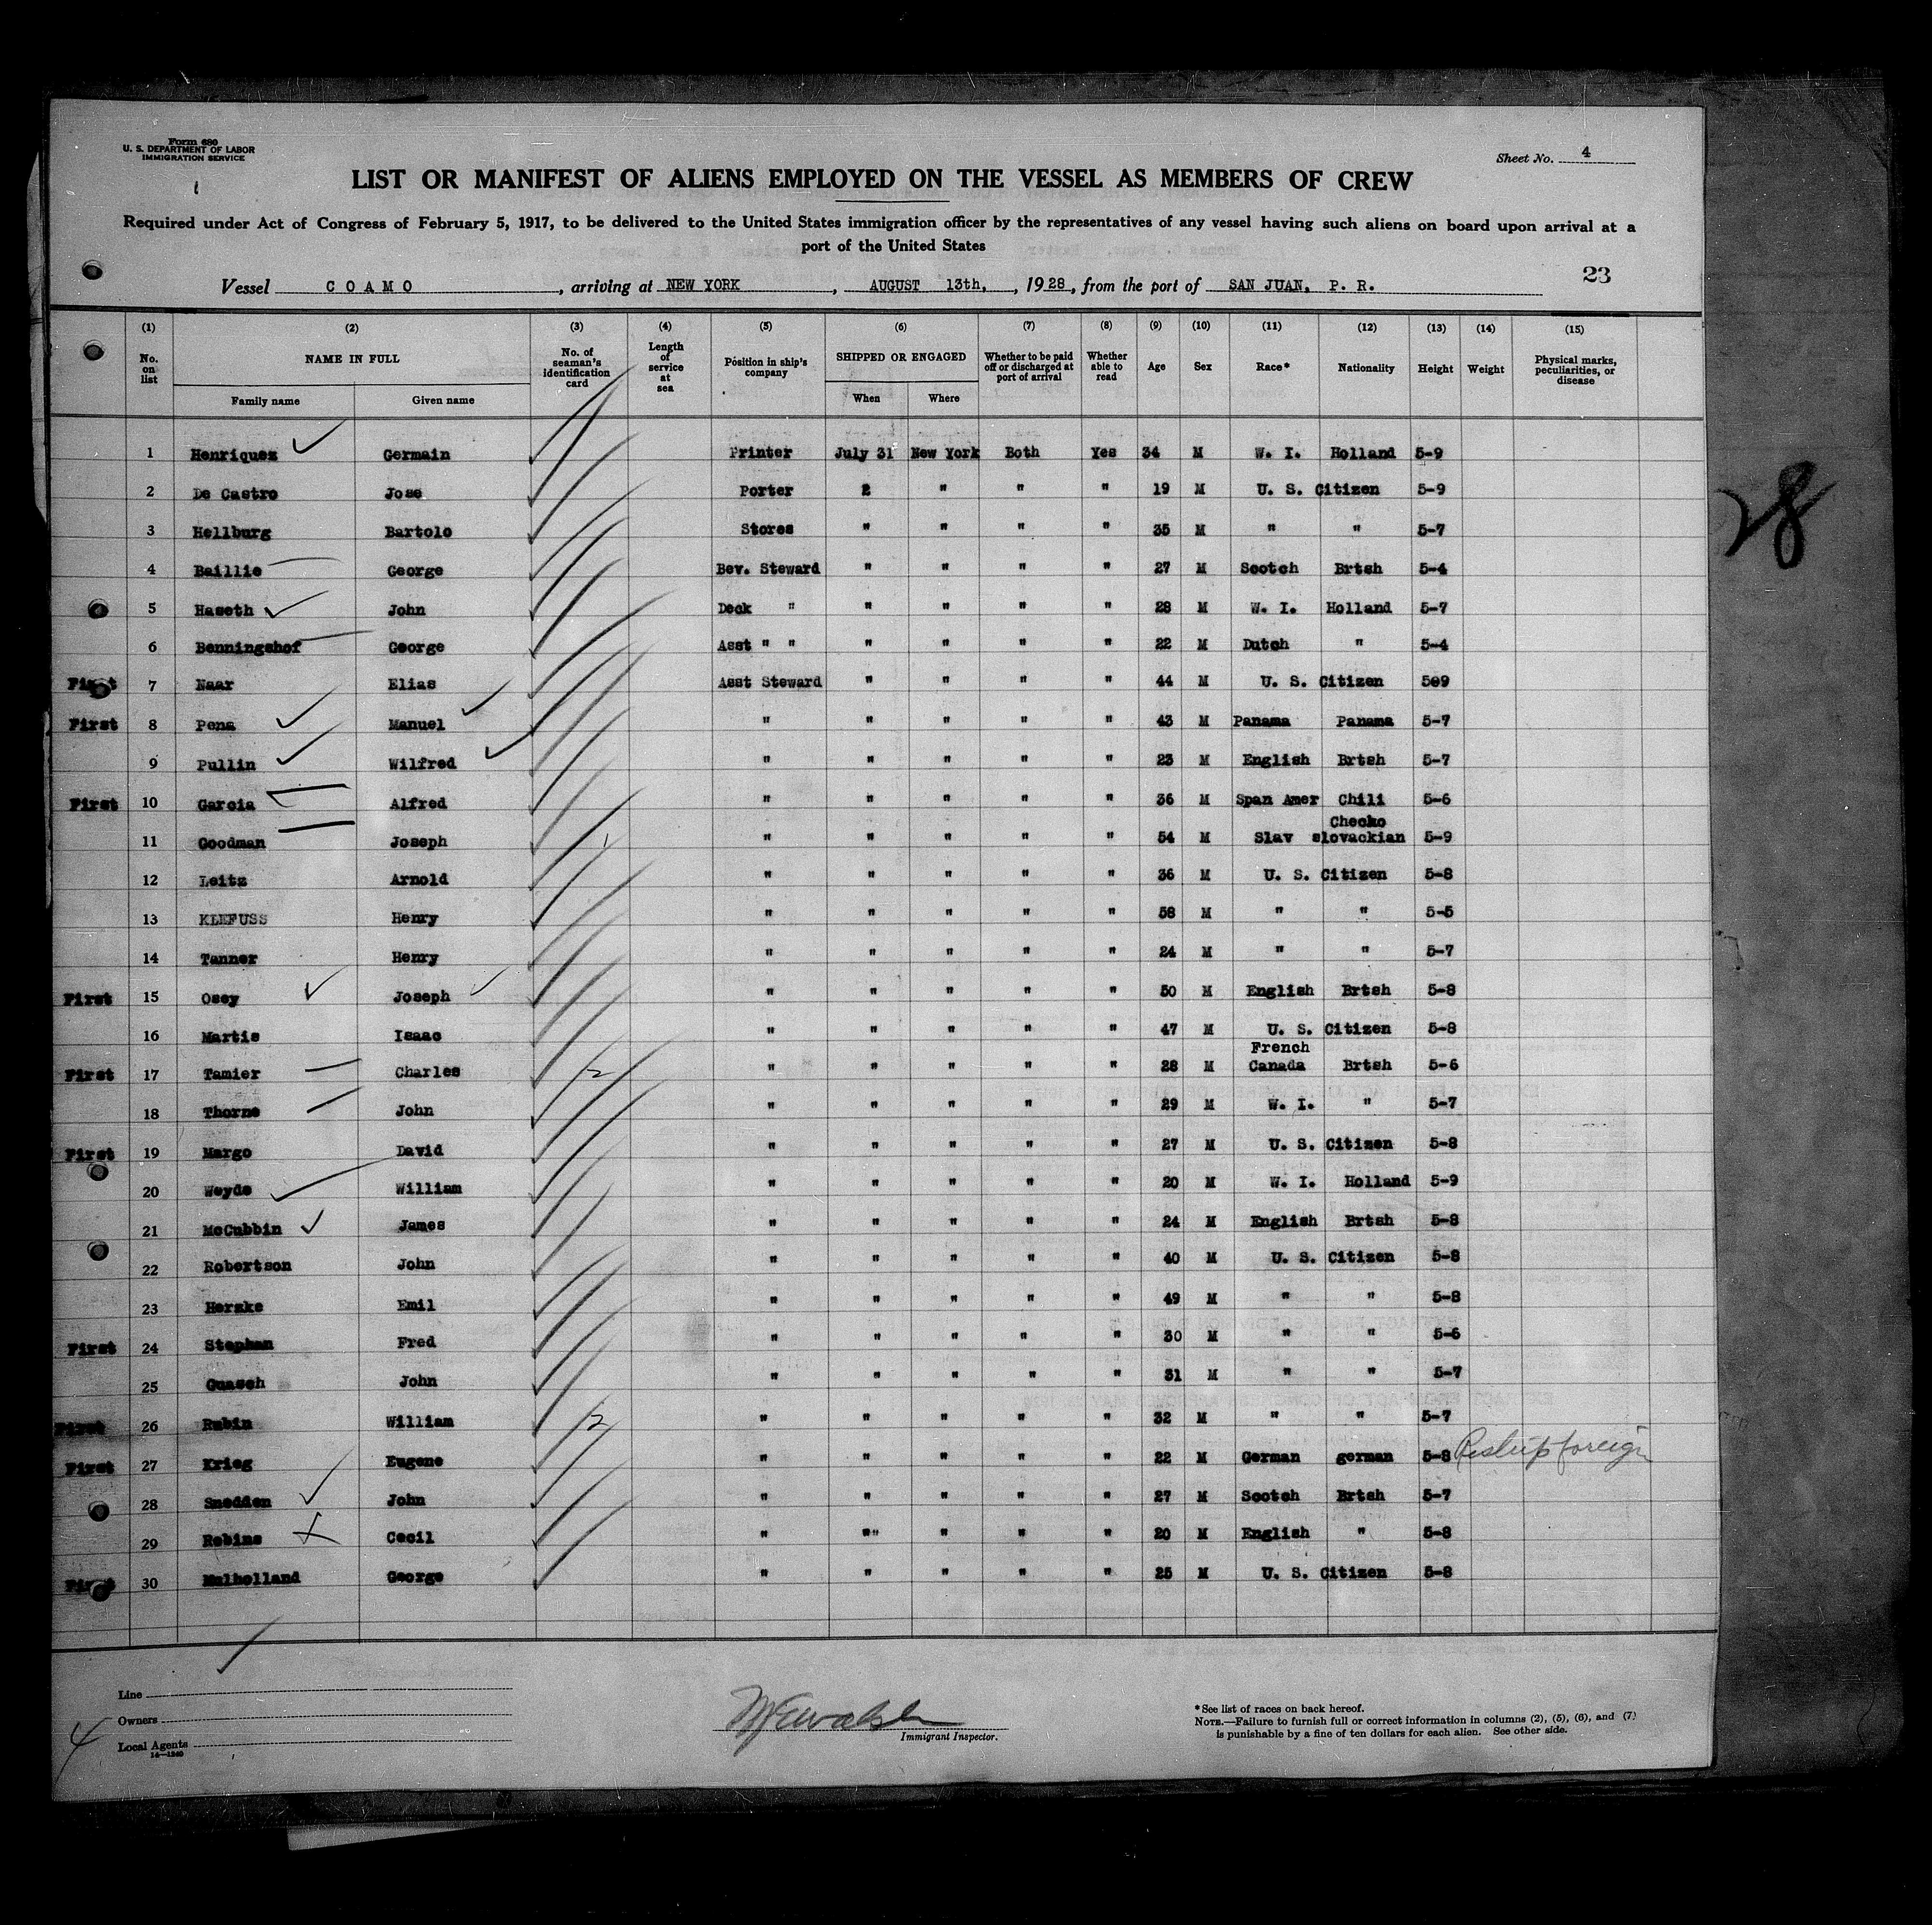 Form 680
U. S. DEPARTMENT OF LABOR
IMMIGRATION SERVICE
Sheet No. 4
LIST OR MANIFEST OF ALIENS EMPLOYED ON THE VESSEL AS MEMBERS OF CREW
Required under Act of Congress of February 5, 1917, to be delivered to the United States immigration officer by the representatives of any vessel having such aliens on board upon arrival at a
port of the United States
23
Vessel COAMO, arriving at NEW YORK, AUGUST 13th, 1928, from the port of SAN JUAN, P. R.
(1) (2) (3) (4) (5) (6) (7) (8) (9) (10) (11) (12) (13) (14) (15)
No. on list NAME IN FULL Family name Given name No. of seaman's identification card Length of service at sea Position in ship's company SHIPPED OR ENGAGED When Where Whether to be paid off or discharged at port of arrival Whether able to read Age Sex Race* Nationality Height Weight Physical marks, peculiarities, or disease
1 Henriquez Germain Printer July 31 New York Both Yes 34 M W. I. Holland 5-9
2 De Castro Jose Porter 2 " " " 19 M U. S. Citizen 5-9
3 Hellburg Bartolo Stores " " " " 35 M " " 5-7
4 Baillie George Bev. Steward " " " " 27 M Scotch Brtsh 5-4
5 Haseth John Deck " " " " " 28 M W. I. Holland 5-7
6 Benningshof George Asst " " " " " " 22 M Dutch " 5-4
First 7 Naar Elias Asst Steward " " " " 44 M U. S. Citizen 5@9
First 8 Pena Manuel " " " " " 43 M Panama Panama 5-7
9 Pullin Wilfred " " " " " 23 M English Brtsh 5-7
First 10 Garcia Alfred " " " " " 36 M Span Amer Chili 5-6
11 Goodman Joseph " " " " " 54 M Slav Checko slovackian 5-9
12 Leitz Arnold " " " " " 36 M U. S. Citizen 5-8
13 KLEFUSS Henry " " " " " 58 M " " 5-5
14 Tanner Henry " " " " " 24 M " " 5-7
First 15 Osey Joseph " " " " " 50 M English Brtsh 5-8
16 Martis Isaac " " " " " 47 M U. S. Citizen 5-8
First 17 Tamier Charles 2 " " " " " 28 M French Canada Brtsh 5-6
18 Thorne John " " " " " 29 M W. I. " 5-7
First 19 Margo David " " " " " 27 M U. S. Citizen 5-8
20 Weyde William " " " " " 20 M W. I. Holland 5-9
21 McCubbin James " " " " " 24 M English Brtsh 5-8
22 Robertson John " " " " " 40 M U. S. Citizen 5-8
23 Herzke Emil " " " " " 49 M " " 5-8
First 24 Stephan Fred " " " " " 30 M " " 5-6
25 Guasch John " " " " " 31 M " " 5-7
First 26 Rubin William 2 " " " " " 32 M " " 5-7
First 27 Krieg Eugene " " " " " 22 M German german 5-8 Reship foreign
28 Snedden John " " " " " 27 M Scotch Brtsh 5-7
29 Robins Cecil " "" " " " 20 M English " 5-8
First 30 Mulholland George " " " " " 25 M U. S. Citizen 5-8
28
Line
Owners
Local Agents
14—1240
4
Immigrant Inspector.
*See list of races on back hereof.
NOTE.—Failure to furnish full or correct information in columns (2), (5), (6), and (7)
is punishable by a fine of ten dollars for each alien. See other side.